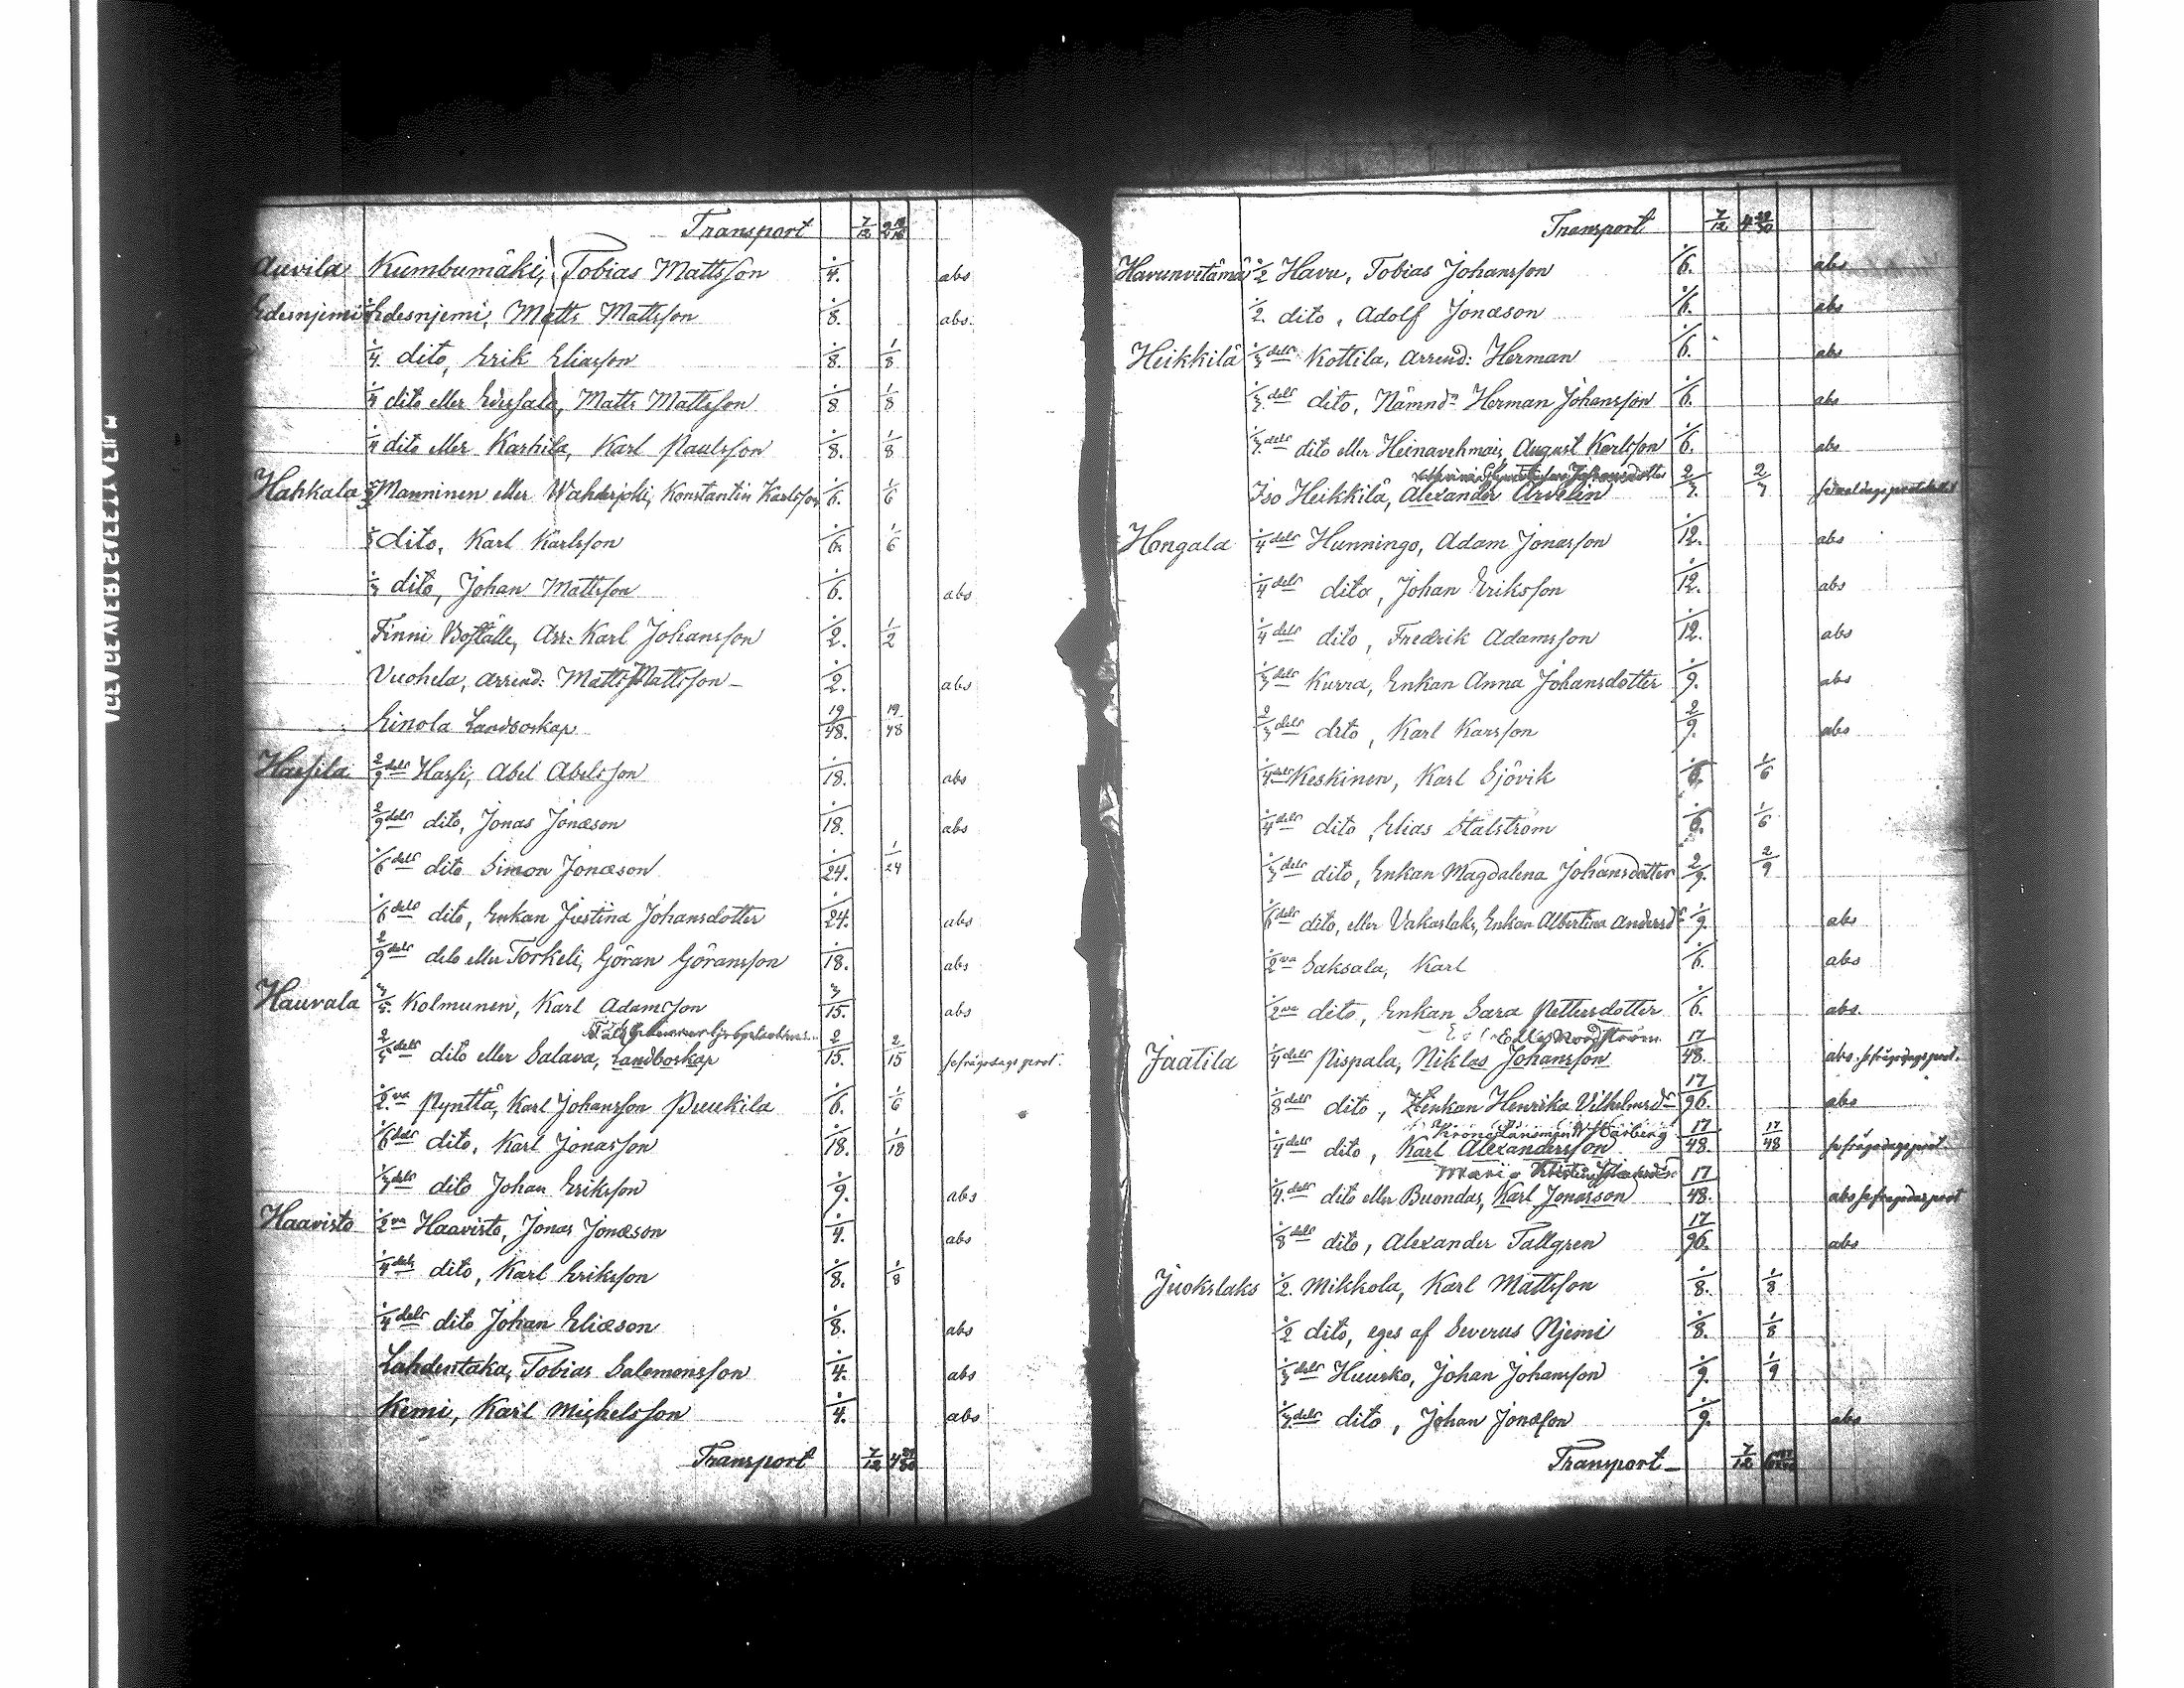 Transport 7/12
Auvila Kumbumäki, Tobias Mattsson 1/4. abs
Edesnjemi Edesnjemi, Matts Mattsson 1/8. abs.
1/4 dito, Erik Eliasson 1/8. 1/8
1/4 dito eller Matts Mattsson 1/8 1/8
1/4 dito eller Karhila, Karl Paulsson 1/8. 1/8
Hahkala 1/3 Manninen eller Wahderjoki, Konstantin Karlsson 1/6. 1/6
1/3 dito, Karl Karlsson 1/6. 1/6
1/3 dito, Johan Mattsson 1/6. abs
Finni Boställe, Arr: Karl Johansson 1/2. 1/2
Vuohela, arrend: Matts Mattsson 1/2. abs
Einola Landboskap 19/48. 19/48
Harfila 2/9 dels Harfi, Abel Abelsson 1/18. abs
2/9 dels dito, Jonas Jonasson 1/18. abs
1/6 dels dito Simon Jonasson 1/24. 1/24
1/6 dels dito, Enkan Justina Johansdotter 1/24. abs
2/9 dels dito eller Torkeli, Göran Göransson 1/18. abs
Hauvala 3/5 Kolmunen, Karl Adamsson 3/15. abs
2/5 dels dito eller Salava, Landboskap 2/15. 2/15 se frågodags prot.
1/2 va Pynttä, Karl Johansson Puukila 1/6. 1/6
1/6 dels dito, Karl Jonasson 1/18. 1/18
1/3 dels dito Johan Eriksson 1/9. abs
Haavisto 1/2 va Haavisto, Jonas Jonasson 1/4. abs
1/4 dels dito, Karl Eriksson 1/8. 1/8
1/4 dels dito Johan Eliasson 1/8. abs
Lahdentaka, Tobias Salomonsson 1/4. abs
Kemi, Karl Michelsson 1/4. abs
Transport 7/12 4 29/30
Transport 7/12 4 29/30
Havunvitämä 1/2 Havu, Tobias Johansson 1/6. abs
1/2. dito, Adolf Jonasson 1/6. abs
Heikkilä 1/3 dels Kottila, arrend: Herman 1/6. abs
1/3 dels dito, Nämndn Herman Johansson 1/6. abs
1/3 dels dito eller Heinavehmais, August Karlsson 1/6. abs
Iso Heikkilä, Alexander Arvelin 2/3. 2/3
Hongala 1/4 dels Hunningo, Adam Jonasson 1/12. abs
1/4 dels dito, Johan Eriksson 1/12. abs
1/4 dels dito, Fredrik Adamsson 1/12. abs
1/3 dels Kurra, Enkan Anna Johansdotter 1/9. abs
2/3 dels dito, Karl Karsson 2/9. abs
1/4 dels Keskinen, Karl Sjövik 1/6. 1/6
1/4 dels dito, Elias Stalström 1/6. 1/6
1/3 dels dito, Enkan Magdalena Johansdotter 2/9. 2/9
1/6 dels dito, eller Vakaslaks, Enkan Albertina Andersdr 1/9. abs
1/2 va Saksala, Karl 1/6. abs
1/2 va dito, Enkan Sara Pettersdotter 1/6. abs.
Nordström
Jaatila 1/4 dels Pispala, Niklas Johansson 17/48. abs. se frågodags prot.
1/8 dels dito, Enkan Henrika Vilhelmsdr 17/96. abs
Kronolänsman
1/4 dels dito, Karl Alexandersson 17/48. 17/48 se frågodags prot.
Maria
1/4. dels dito eller Buondas, Karl Jonasson 17/48. abs se frågodags prot
1/8 dels dito, Alexander Tallgren 17/96. abs
Juokslaks 1/2. Mikkola, Karl Mattsson 1/8. 1/8
1/2 dito, eges af Severus Njemi 1/8. 1/8
1/3 dels Huurko, Johan Johansson 1/9. 1/9
1/3 dels dito, Johan Jonasson 1/9. abs
Transport 7/12